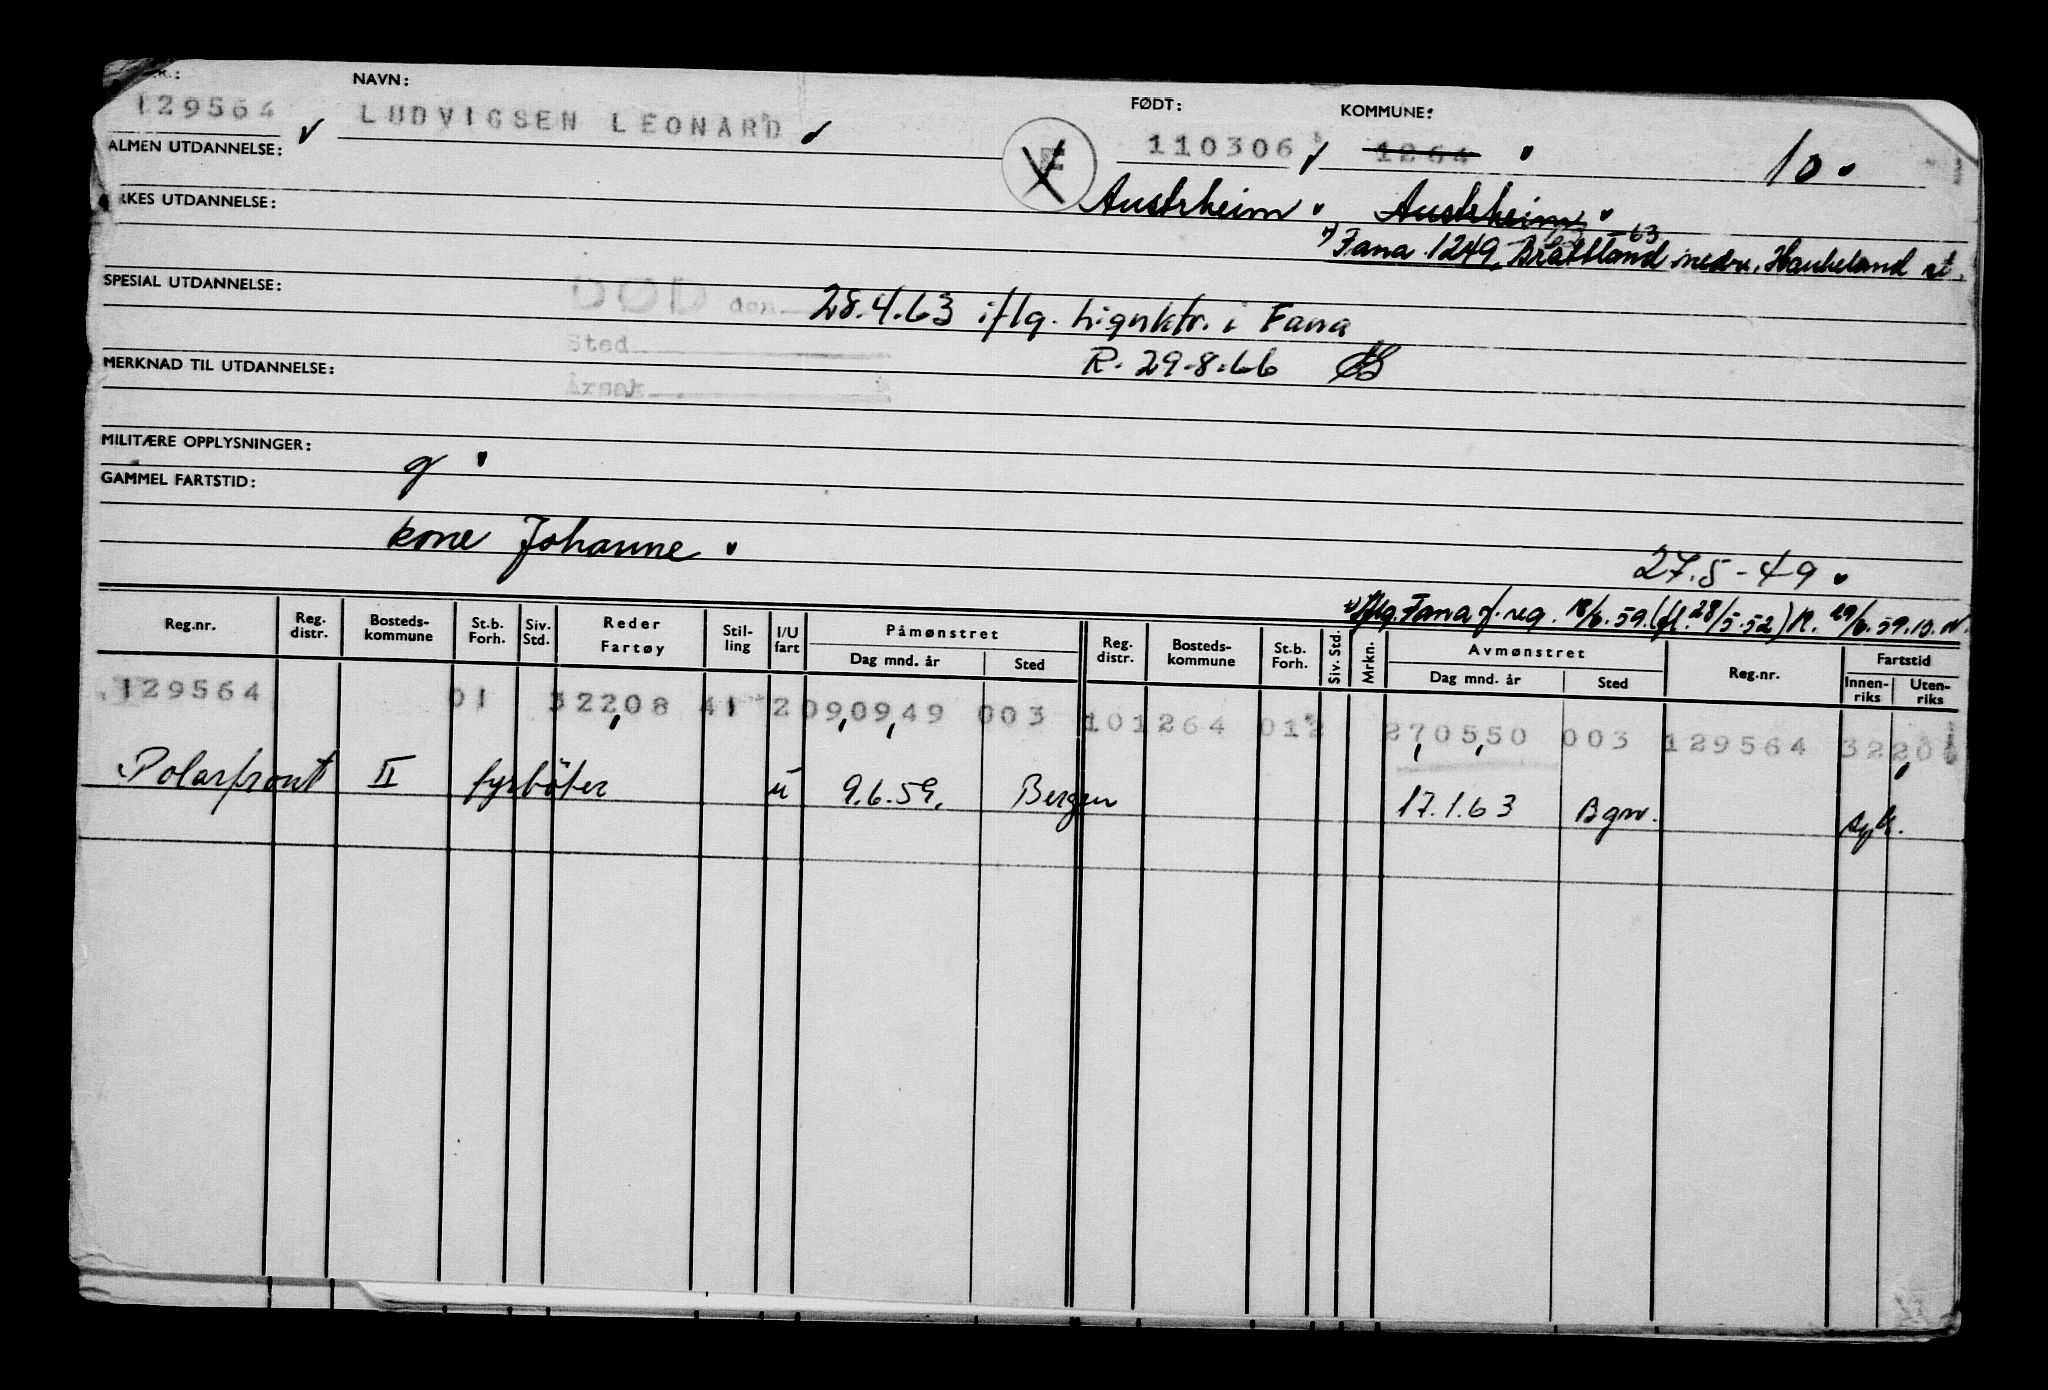 NAVN: FØDT: KOMMUNE:
129564 LUDVIGSEN LEONARD 110306 1264 10
ALMEN UTDANNELSE:
Austrheim Austrheim
RKES UTDANNELSE:
Fana 1249, Brattland nedre, Haukeland st.
63
SPESIAL UTDANNELSE:
DØD den 28.4.63 iflg. lignktr. i Fana
Sted
R. 29-8.66
MERKNAD TIL UTDANNELSE:
Årsak
MILITÆRE OPPLYSNINGER:
g
GAMMEL FARTSTID:
kone Johanne
27.5-49
Iflg. Fana f. reg. 18/6.59. (fl. 28/5.52) R. 29/6.59.
Reg.nr. Reg. distr. Bosteds-kommune St.b. Forh. Siv. Std. Reder Fartøy Stil-ling I/U fart Påmønstret Dag mnd. år Sted Reg. distr. Bosteds-kommune St.b. Forh. Siv. Std. Mrkn. Avmønstret Dag mnd. år Sted Reg.nr. Fartstid Innen-riks Uten-riks
129564 01 32208 41 2 090949 003 101264 012 270550 003 129564 3220
Polarfront II fyrbøter u 9.6.59. Bergen 17.1.63 Bgn.